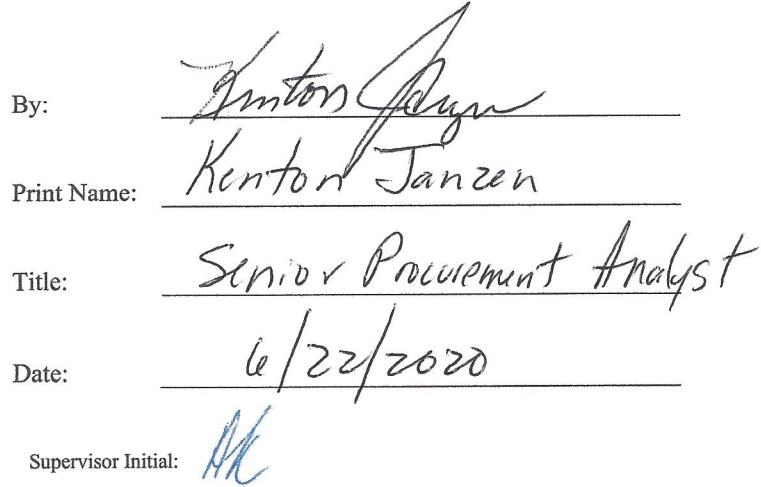 By: Kenton Janzen
Print Name: Kenton Janzen
Title: Senior Procurement Analyst
Date: 6/22/2020
Supervisor Initial: AK